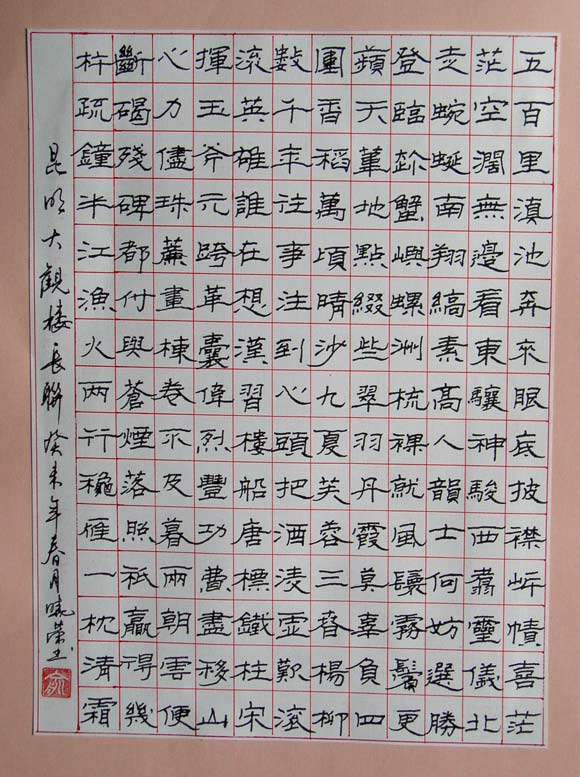 五百里滇池奔來眼底披襟岸幘喜茫
茫空濶無邊看東驤神駿西翥靈儀北
走蜿蜒南翔縞素高人韻士何妨選勝
登臨趁蟹嶼螺洲梳裸就風鬟霧鬢更
蘋天葦地點綴些翠羽丹霞莫辜負四
圍香稻萬頃晴沙九夏芙蓉三春楊柳
數千年往事注到心頭把酒淩虛歎滾
滾英雄誰在想漢習樓船唐標鐵柱宋
揮玉斧元跨革囊偉烈豐功費盡移山
心力儘珠簾畫棟卷不及暮雨朝雲便
斷碣殘碑都付與蒼煙落照祇贏得幾
杵疏鐘半江漁火兩行穐雁一枕清霜
昆明大觀樓長聯癸未年春月曉榮書